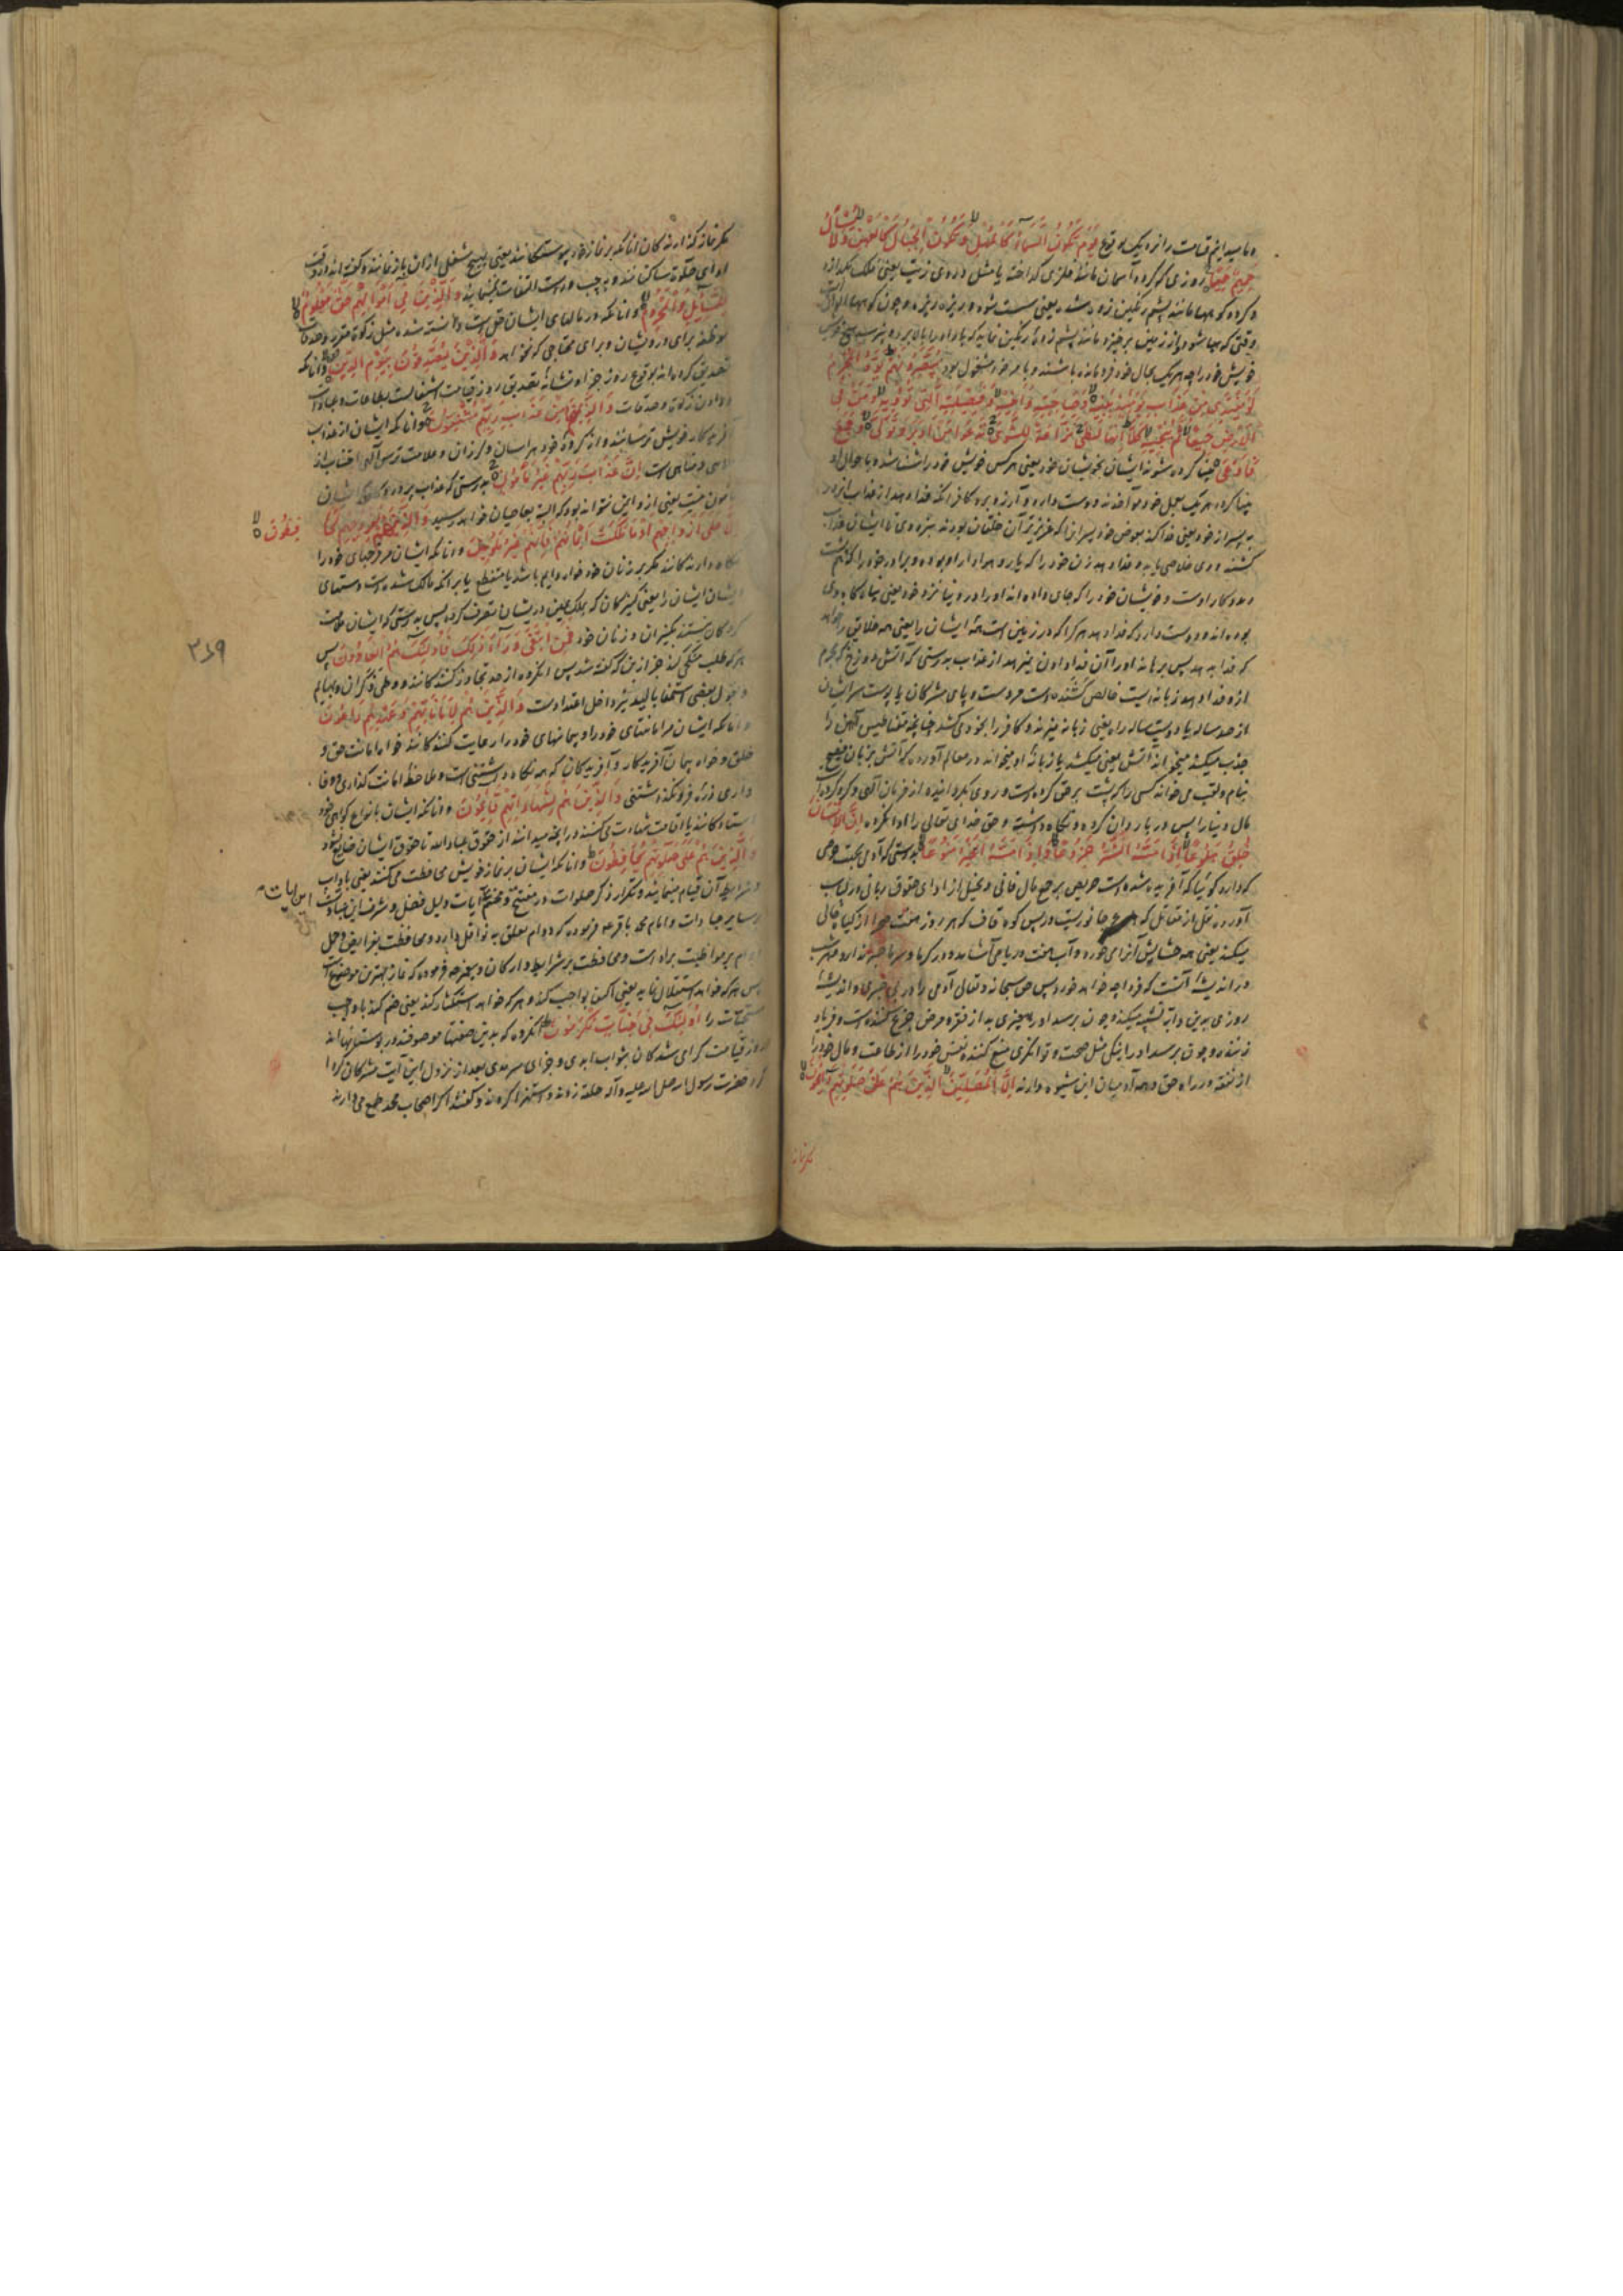 و ما میدانیم قیامت را نزدیک بوقوع یَوْمَ تَکُونُ السَّمَآءُ کَالْمُهْلِ وَتَکُونُ الْجِبَالُ کَالْعِهْنِ وَلَا یَسْئَلُ
حَمِیمٌ حَمِیمًا روزی که کردد آسمان مانند فلزی کداخته یا مثل دردی زیت یعنی فلک بکدازد
و کردد کوهها مانند پشم رنکین زده شده یعنی سست شود و ریزه ریزه و چون کوهها
وقتی که هبا شود و از زمین برخیزد مانند پشم زده رنکین نماید که باد او را بالا برد و نپرسد هیچ خویش
خویش خود را چه هر یک بحال خود فرو مانده باشند و بامر خود مشغول بود یُبَصَّرُونَهُمْ یَوَدُّ الْمُجْرِمُ
لَوْ یَفْتَدِی مِنْ عَذَابِ یَوْمِئِذٍ بِبَنِیهِ وَصَاحِبَتِهِ وَاَخِیهِ وَفَصِیلَتِهِ الَّتِی تُؤْوِیهِ وَمَنْ فِی
الْاَرْضِ جَمِیعًا ثُمَّ یُنْجِیهِ کَلَّا اِنَّهَا لَظَی نَزَّاعَةً لِلشَّوَی تَدْعُوا مَنْ اَدْبَرَ وَتَوَلَّی وَجَمَعَ
فَاَوْعَی بینا کرده شوند ایشان بخویشان خود یعنی هر کس خویش خود را شناسد و باحوال او
بینا کردد هر یک بعمل خود مواخذند دوست دارد و آرزو برد کافر آنکه فدا دهد از عذاب آنروز
به پسر از خود یعنی فدا کند بعوض خود پسرانرا که عزیزترین خلقان بودند نزد وی تا ایشان
کشند و وی خلاصی یابد و فدا دهد زن خود را که یار و همراز او بوده و برادر خود را که هم پشت
و مددکار اوست و خویشان خود را که جای داده اند او را در دنیا نزد خود یعنی پناه کاه وی
بوده اند و دوست دارد که فدا دهد هر کرا که در زمین است همه ایشان را یعنی همه خلایق را خواهد
که فدا بدهد پس برهاند او را آن فدا دادن نیز نهد از عذاب بدرستی که آتش دوزخ که مجرم
ازو فدا دهد زبانه ایست خالص کشنده است مر دست و پای مشرکان یا پوست سر ایشان
از صد ساله یا دویست ساله راه یعنی زبانه میزند و کافر را بخود می کشد چنانچه مقناطیس آهن را
جذب میکند میخواند آتش یعنی میکشد یا زبانه او میخواند در معالم آورده که آتش بزبان فصیح
بنام و لقب می خواند کسی را که پشت بر حق کرده است و روی بکردانیده از فرمان الهی و کرد کرده
مال دنیا را پس در بار دان کرده و نکاه داشته و حق خدای تعالی را ادا نکرده اِنَّ الْاِنْسَانَ
خُلِقَ هَلُوعًا اِذَا مَسَّهُ الشَّرُّ جَزُوعًا وَاِذَا مَسَّهُ الْخَیْرُ مَنُوعًا بدرستی که آدمی بجهت حرصی
که دارد کوئیا که آفریده شده است حریص بر جمع مال فانی و بخیل از ادای حقوق ربانی در لباب
آورده نقل از مقاتل که هلوع جانوریست در پس کوه قاف که هر روز هفت صحرا از کیاه خالی
میکند یعنی همه حشایش آنرا می خورد و آب هفت دریا می آشامد و در کرما و سرما صبر ندارد و هر شب
در اندیشه آنست که فردا چه خواهد خورد پس حق سبحانه و تعالی آدمی را در بی صبری و اندیشه
روزی بدین دابه تشبیه میکند و چون برسد او را چیزی بد از فقر و مرض جزع کننده است و فریاد
زننده و چون برسد او را نیکی مثل صحت و توانکری منع کننده نفس خود را از طاعت و مال خود را
از نفقه در راه حق و همه آدمیان این شیوه دارند اِلَّا الْمُصَلِّینَ الَّذِینَ هُمْ عَلَی صَلَوتِهِمْ دَآئِمُونَ
مکر نماز
مکر نماز کذارندکان آنانکه بر نماز خود پیوستکانند یعنی بهیچ شغلی از آن باز نمانند و کفته اند در وقت
ادای صلوة ساکن شوند و بچپ و راست التفات ننمایند وَالَّذِینَ فِی اَمْوَالِهِمْ حَقٌّ مَعْلُومٌ
لِلسَّآئِلِ وَالْمَحْرُومِ و آنانکه در مالهای ایشان حق است دانسته شده مثل زکوة مقرر و صدقات
موظف برای درویشان و برای محتاجی که نخواهد وَالَّذِینَ یُصَدِّقُونَ بِیَوْمِ الدِّینِ و آنانکه
تصدیق کرده اند بوقوع روز جزا و نشانه تصدیق روز قیامت اشتغالست بطاعات و عبادات
و دادن زکوة و صدقات وَالَّذِینَ هُمْ مِنْ عَذَابِ رَبِّهِمْ مُشْفِقُونَ و آنانکه ایشان از عذاب
آفریدکار خویش ترسانند و از کرده خود هراسان و لرزان و علامت ترس الهی اجتناب از
ملاهی و مناهی است اِنَّ عَذَابَ رَبِّهِمْ غَیْرُ مَأْمُونٍ بدرستی که عذاب پروردکار ایشان
مامون نیست یعنی از او ایمن نتواند بود که البته بعاصیان خواهد رسید وَالَّذِینَ هُمْ لِفُرُوجِهِمْ حَا
فِظُونَ
اِلَّا عَلَی اَزْوَاجِهِمْ اَوْ مَا مَلَکَتْ اَیْمَانُهُمْ فَاِنَّهُمْ غَیْرُ مَلُومِینَ و آنانکه ایشان مر فرجهای خود را
نکاه دارندکانند مکر بر زنان خود خواه دایم باشد یا منقطع یا بر آنکه مالک شده است دستهای
ایشان ایشان را یعنی کنیزکان که بملک یمین در ایشان تصرف کرده پس بدرستی که ایشان ملامت
کردکان نیستند بکنیزان و زنان خود فَمَنِ ابْتَغَی وَرَآءَ ذَلِکَ فَاُولَئِکَ هُمُ الْعَادُونَ پس
هر که طلب میکند جز از این که کفته شد پس آنکروه از حد تجاوز کنندکانند و وطی ذکران و بهایم
و بقول بعضی استمنا بالید نیز داخل اعتداست وَالَّذِینَ هُمْ لِاَمَانَاتِهِمْ وَعَهْدِهِمْ رَاعُونَ
و آنانکه ایشان مر امانتهای خود را و پیمانهای خود را رعایت کنندکانند خواه امانت حق و
خلق و خواه پیمان آفریدکار و آفریدکان که همه نکاه داشتنی است و ملاحظه امانت کذاری و وفا
داری ذره فرو نکذاشتنی وَالَّذِینَ هُمْ بِشَهَادَاتِهِمْ قَآئِمُونَ و آنانکه ایشان بانواع کواهی خود
استادکانند یا اقامت شهادت می کنند در آنچه میدانند از حقوق عباد الله تا حقوق ایشان ضایع نشود
وَالَّذِینَ هُمْ عَلَی صَلَوتِهِمْ یُحَافِظُونَ و آنانکه ایشان بر نماز خویش محافظت می کنند یعنی باداب
و شرایط آن قیام مینمایند و تکرار ذکر صلوات در مفتتح و مختتم آیات دلیل فضل و شرف این عبادتست
بر سایر عبادات و امام محمد باقر ع فرموده که دوام تعلق به نوافل دارد و محافظت بفرایض و حمل
دوام بر مواظبت براه است و محافظت بر شرایط و ارکان و پیغمبر فرموده که نماز بهترین موضوعات
پس هر که خواهد استقلال نماید یعنی اکتفا بواجب کند و هر که خواهد استکثار کند یعنی ضم کند با واجب
مستحبات را اُولَئِکَ فِی جَنَّاتٍ مُکْرَمُونَ آنکروه که بدین صفتها موصوفند در بوستانهااند
روز قیامت کرامی شدکان بثواب ابدی و جزای سرمدی بعد از نزول این آیت مشرکان کردا
کرد حضرت رسول الله صلی الله علیه وآله حلقه زدند و استهزا کردند و کفتند اکر اصحاب محمد طمع میدارند
۳۶۹